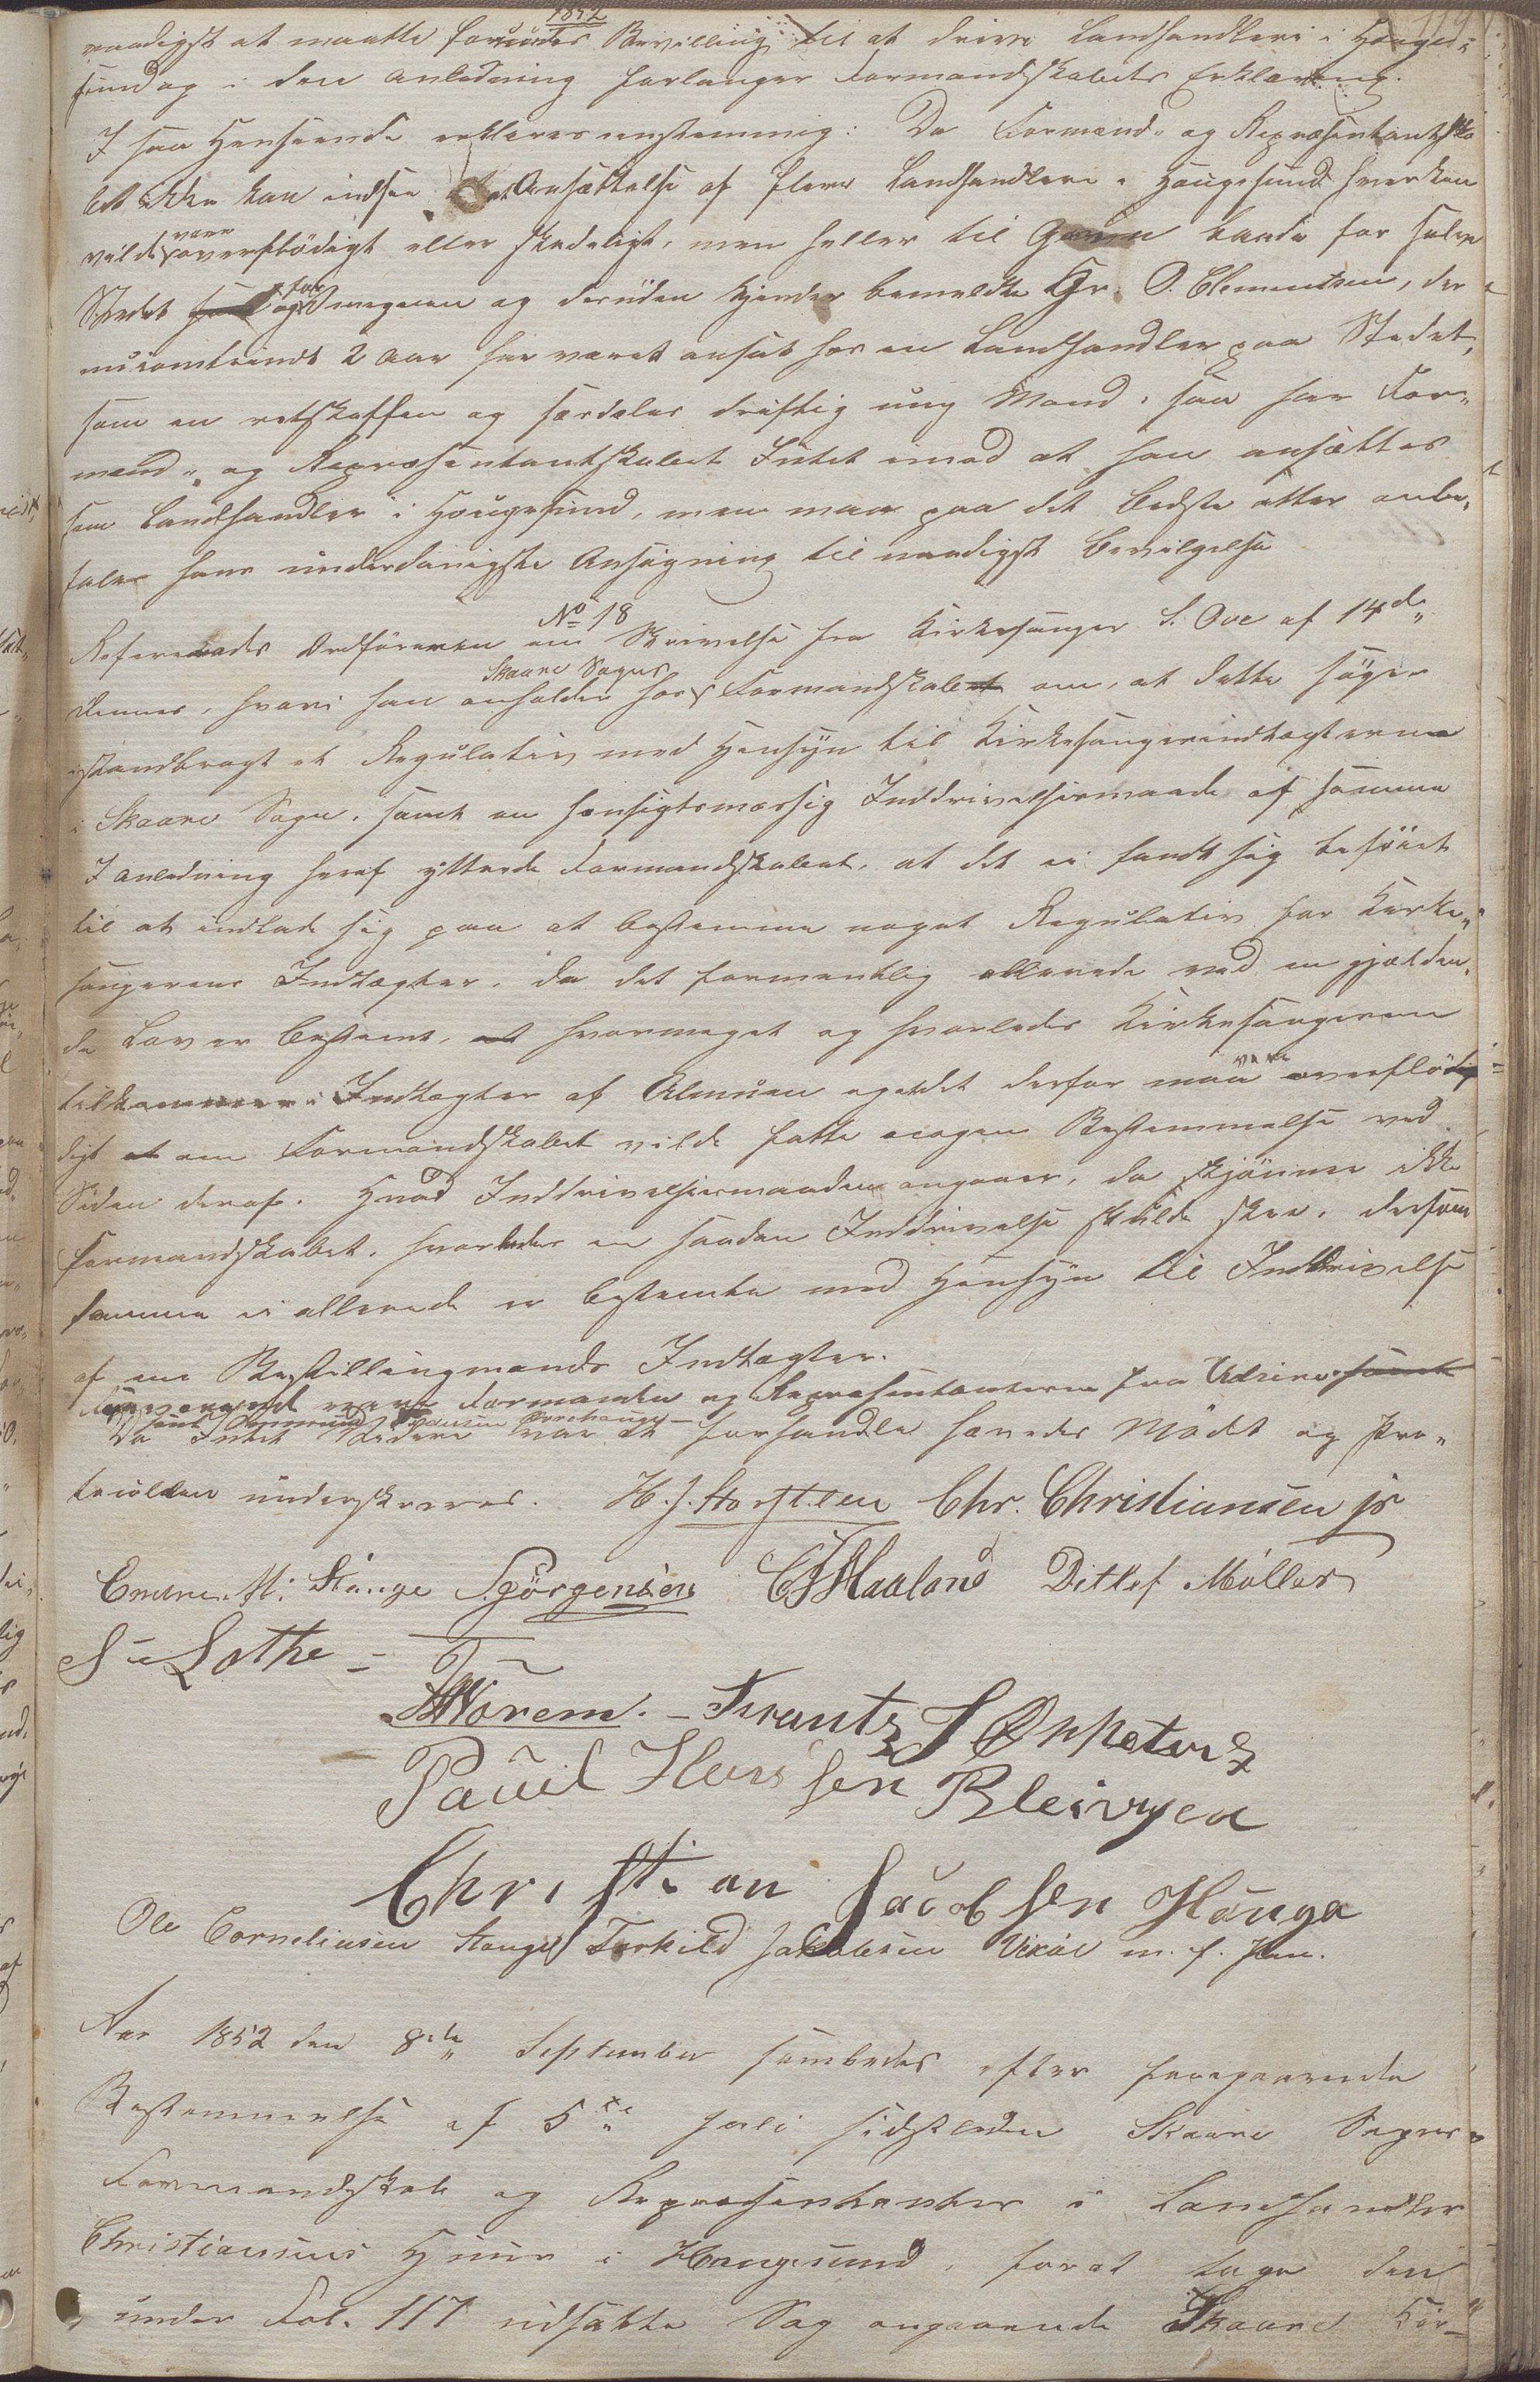 119
1852
naadigst at maatte forundes Bevilling til at drive Landhandleri i Houge-
sund og i den Anledning forlanger Formandskabets Erklæring.
I saa Henseende erklæres eenstemmig: Da Formænd- og Repræsentantska
bet ikke kan indsee, at Ansættelse af flere Landhandlere i Hougesund hverken
vilde være overflødigt eller skadeligt, men heller til Gavn baade for selve
Stedet og for Omegnen og desuden kjender bemeldte Hr. O. Clementsen, der
nu omtrendt 2 Aar har været ansat hos en Landhandler paa Stedet,
som en retskaffen og særdeles driftig ung Mand, saa har For-
mænd- og Repræsentantskabet Intet imod at han ansættes
som Landhandler i Hougesund, men maa paa det bedste atter anbe-
fale hans underdanigste Ansøgning til naadigst Bevilgelse
No 18
Refereredes Ordføreren en Skrivelse fra Kirkesanger S. Ove af 14de
dennes, hvori han anholder hos Skaare Sogns Formandskab om, at dette søger
istandbragt et Regulativ med Hensyn til Kirkesangerindtægterne
i Skaare Sogn, samt en hensigtsmæssig Inddrivelsesmaade af samme
I Anledning heraf yttrede Formandskabet, at det ei fandt sig beføiet
til at indlade sig paa at bestemme noget Regulativ for Kirke-
sangerens Indtægter, da det formentlig allerede ved en gjælden-
de Lov er bestemt, hvormeget og hvorledes Kirkesangeren
tilkommer i Indtægter af Almuen og at det derfor maa være overflødig
digt om Formandskabet vilde fatte nogen Bestemmelse ved
Siden deraf. Hvad Inddrivelsesmaaden angaaer, da skjønner ikke
Formandskabet, hvorledes en saadan Inddrivelse skulde skee, dersom
samme ei allerede er bestemt med Hensyn til Inddrivelse
af en Bestillingsmands Indtægter.
Fraværende vare Formanden og Repræsentanterne fra Udsire samt
Da Intet videre var at forhandle hævedes Mødet og Pro-
tocollen underskreves. H. J. Stoltsen Chr. Christiansen jr
Endre M: Hauge S. Jörgensen C F Haaland Ditlef Møller
S. Lothe
Worem. - Frantz S Oppeters
Pauel Hansen Bleivigen
Christian Jacobsen Hauge
Ole Corneliusen Hauge Torkild Jakobsen Vikse m. f. Pen.
Aar 1852 den 8de September samledes efter foregaaende
Bestemmelse af 5te Juli sidstleden Skaare Sogns
Formandskab og Repræsentanter i Landhandler
Christiansens Huus i Hougesund, for at tage den
under Fol. 117 udsatte Sag angaaende Skaare Kir-